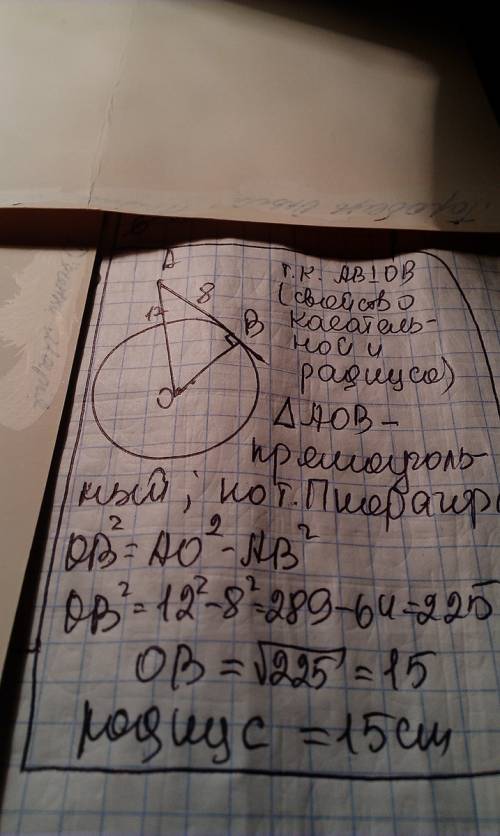 A
8
17
B
O
т.к. AB⊥OB
(свойство
касатель-
ной и
радиуса)
△AOB –
прямоуголь-
ный; по т. Пифагора
OB² = AO² - AB²
OB² = 17² - 8² = 289 - 64 = 225
OB = √225 = 15
радиус = 15 см